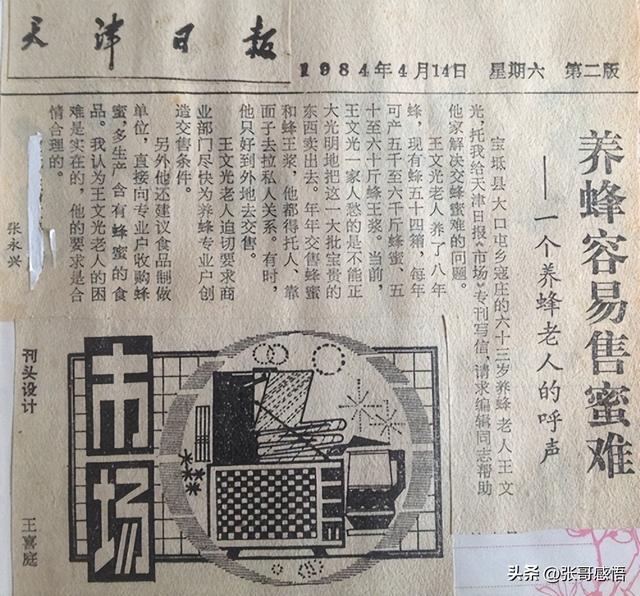 天津日报
1984年4月14日 星期六 第二版
养蜂容易售蜜难
——一个养蜂老人的呼声
宝坻县大口屯乡寇庄的六十三岁养蜂老人王文
光，托我给天津日报《市场》专刊写信，请求编辑同志帮助
他家解决交蜂蜜难的问题。
王文光老人养了八年
蜂，现有蜂五十四箱，每年
可产五千至六千斤蜂蜜、五
十至六十斤蜂王浆。当前，
王文光一家人愁的是不能正
大光明地把这一大批宝贵的
东西卖出去。年年交售蜂蜜
和蜂王浆，他都得托人、靠
面子去拉私人关系。有时，
他只好到外地去交售。
王文光老人迫切要求商
业部门尽快为养蜂专业户创
造交售条件。
另外他还建议食品制做
单位，直接向专业户收购蜂
蜜，多生产含有蜂蜜的食
品。我认为王文光老人的困
难是实在的，他的要求是合
情合理的。
张永兴
市场
刊头设计 王喜庭
头条 @张哥感悟